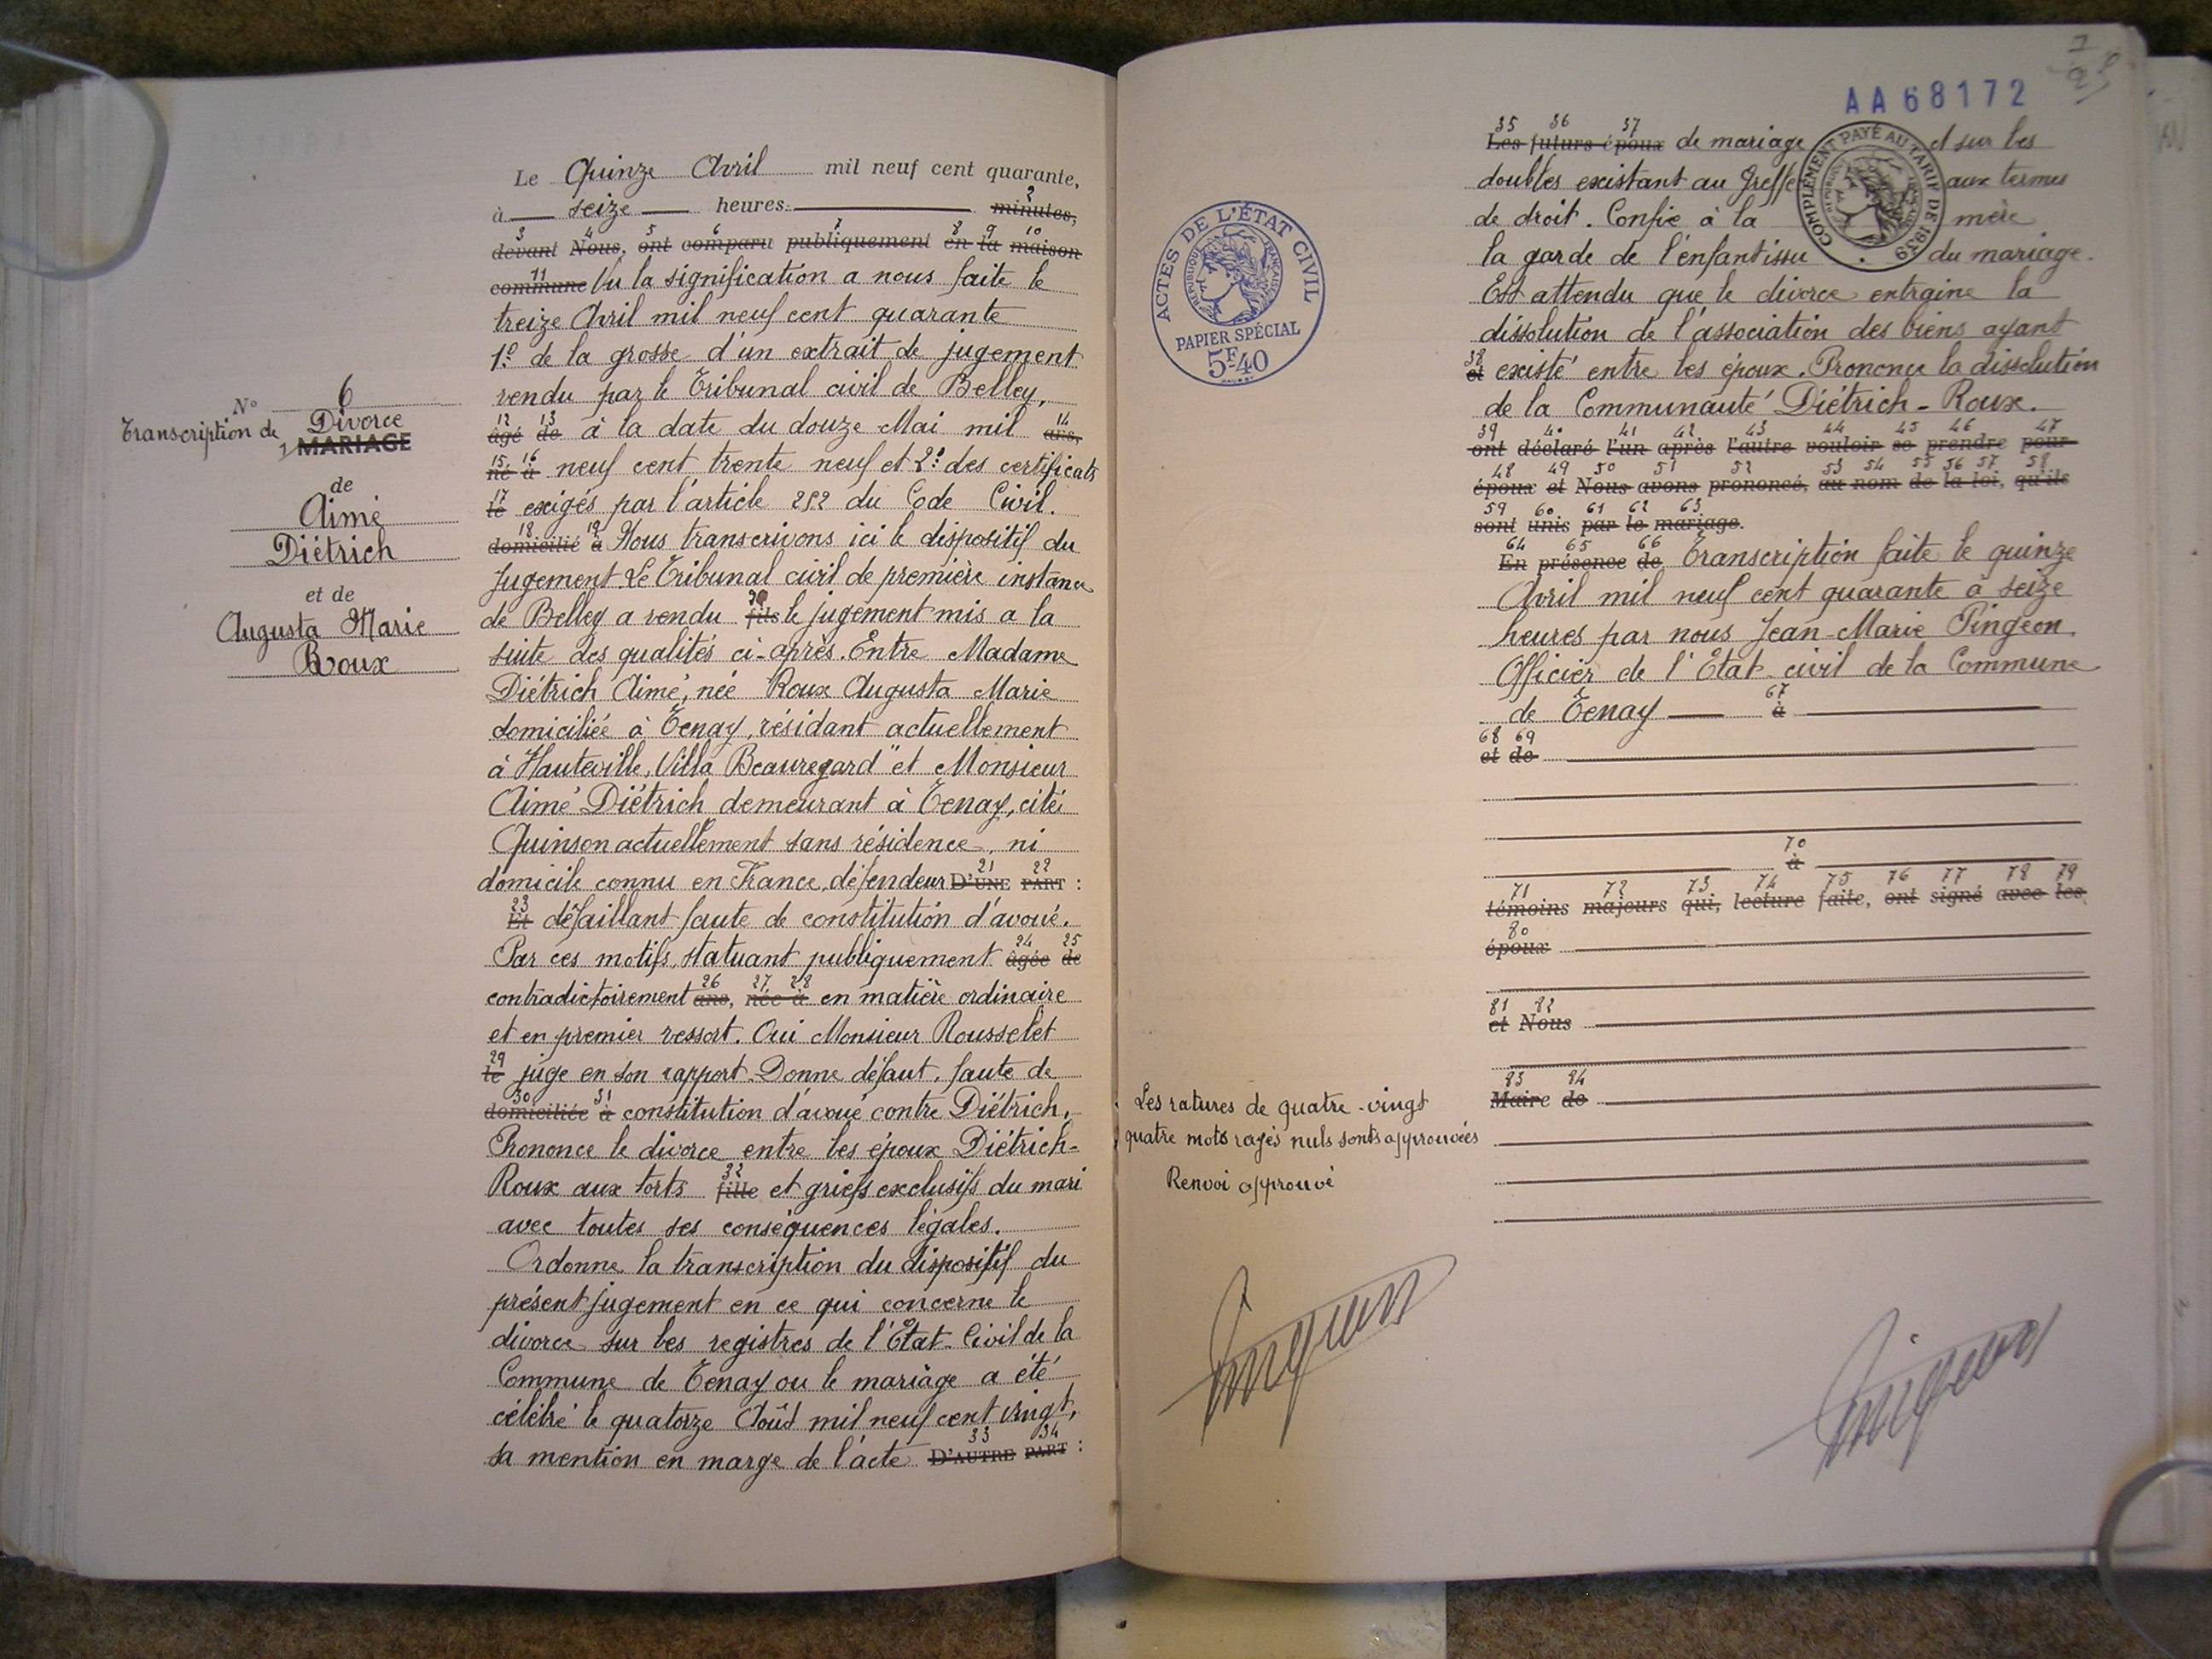 N° 6
Transcription de Divorce
1 MARIAGE
de
Aimé
Diétrich
et de
Augusta Marie
Roux
Le Quinze Avril mil neuf cent quarante,
à seize heures minutes, 2
3 4 5 6 7 8 9 10
devant Nous, ont comparu publiquement en la maison
11 commune Vu la signification a nous faite le
treize Avril mil neuf cent quarante
1° de la grosse d'un extrait de jugement
rendu par le Tribunal civil de Belley,
12 13 14
âgé de à la date du douze Mai mil ans,
15 16
né à neuf cent trente neuf et 2° des certificats
17
le exigés par l'article 252 du Code Civil.
18 19
domicilié à Nous transcrivons ici le dispositif du
Jugement. Le Tribunal civil de première instance
20
de Belley a rendu fils le jugement mis a la
suite des qualités ci-après. Entre Madame
Diétrich Aimé, née Roux Augusta Marie
domiciliée à Tenay, résidant actuellement
à Hauteville, Villa Beauregard" et Monsieur
Aimé Diétrich demeurant à Tenay, cité
Quinson actuellement sans résidence, ni
21 22
domicile connu en France, défendeur D'UNE PART :
23
Et défaillant faute de constitution d'avoué.
24 25
Par ces motifs, statuant publiquement âgée de
26 27 28
contradictoirement ans, née à en matière ordinaire
et en premier ressort. Oui Monsieur Rousselet
29
le juge en son rapport. Donne défaut, faute de
30 31
domiciliée à constitution d'avoué contre Diétrich,
Prononce le divorce entre les époux Diétrich-
32
Roux aux torts fille et griefs exclusifs du mari
avec toutes ses conséquences légales.
Ordonne la transcription du dispositif du
présent jugement en ce qui concerne le
divorce sur les registres de l'Etat-Civil de la
Commune de Tenay ou le mariage a été
célébré le quatorze Août mil neuf cent vingt,
33 34
sa mention en marge de l'acte D'AUTRE PART :
ACTES DE L'ÉTAT CIVIL
RÉPUBLIQUE FRANÇAISE
PAPIER SPÉCIAL
5F40
Les ratures de quatre-vingt
quatre mots rayés nuls sonts approuvées
Renvoi approuvé
Pingeon
AA68172
COMPLÉMENT PAYÉ AU TARIF DE 1939
35 36 37
Les futurs époux de mariage et sur les
doubles existant au Greffe aux termes
de droit. Confie à la mère
la garde de l'enfant issu du mariage.
Et attendu que le divorce entraine la
dissolution de l'association des biens ayant
38
et existé entre les époux. Prononce la dissolution
de la Communauté Diétrich-Roux.
39 40 41 42 43 44 45 46 47
ont déclaré l'un après l'autre vouloir se prendre pour
48 49 50 51 52 53 54 55 56 57 58
époux et Nous avons prononcé, au nom de la loi, qu'ils
59 60 61 62 63
sont unis par le mariage.
64 65 66
En présence de Transcription faite le quinze
Avril mil neuf cent quarante à seize
heures par nous Jean-Marie Pingeon
Officier de l'Etat-civil de la Commune
67
de Tenay à
68 69
et de
70
à
71 72 73 74 75 76 77 78 79
témoins majeurs qui, lecture faite, ont signé avec les
80
époux
81 82
et Nous
83 84
Maire de
Pingeon